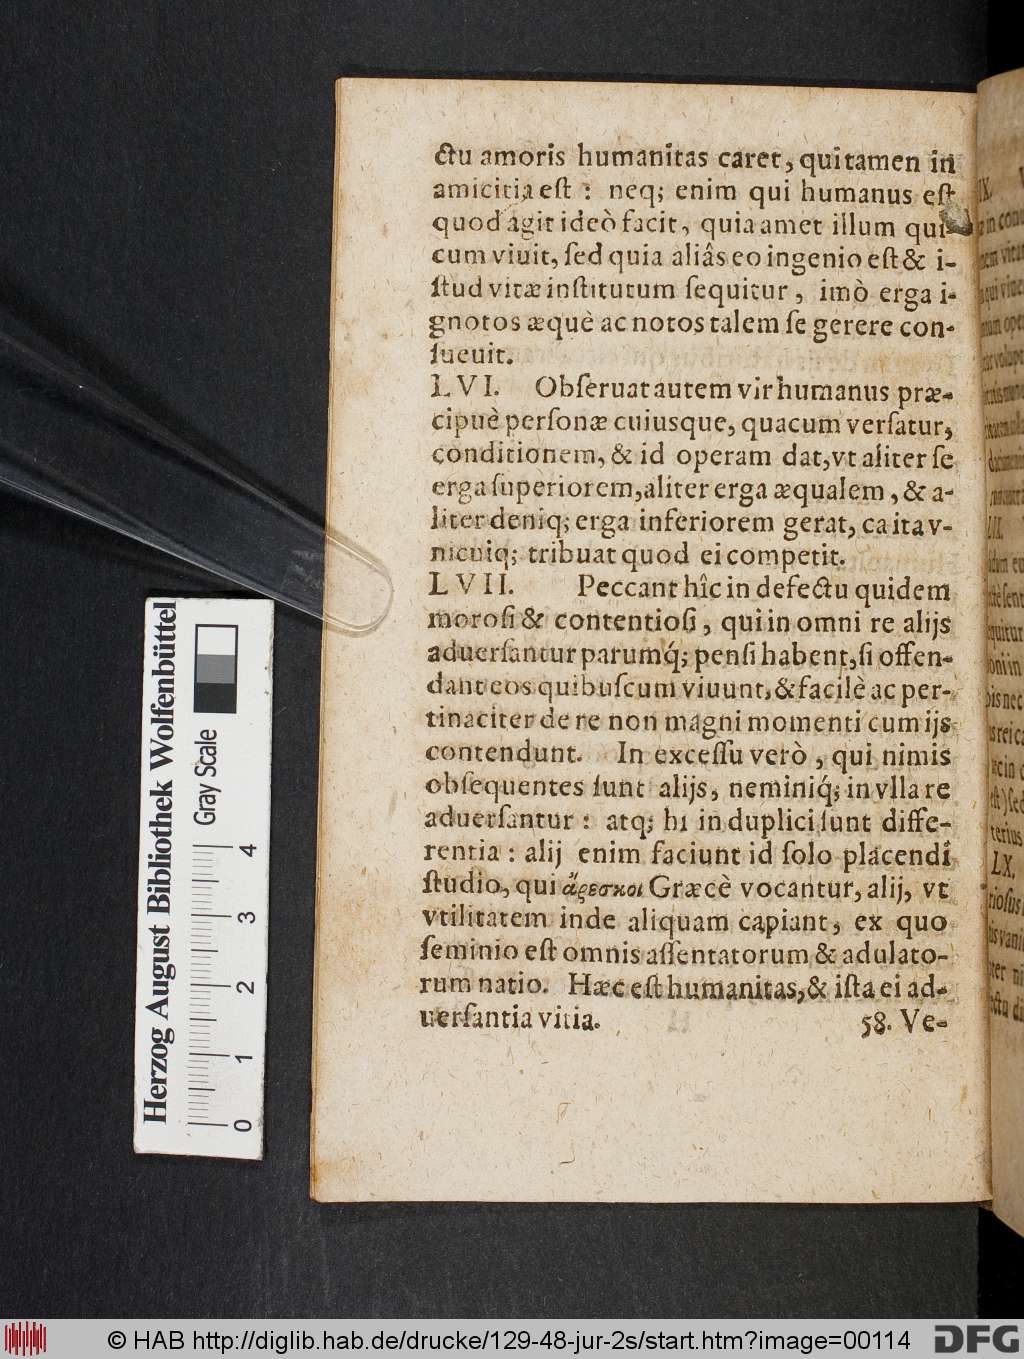 ctu amoris humanitas caret, qui tamen in
amicitia est : neq; enim qui humanus est
quod agit ideò facit, quia amet illum qui-
cum viuit, sed quia aliâs eo ingenio est & i-
stud vitæ institutum sequitur, imò erga i-
gnotos æquè ac notos talem se gerere con-
sueuit.
LVI. Obseruat autem vir humanus præ-
cipuè personæ cuiusque, quacum versatur,
conditionem, & id operam dat, vt aliter se
erga superiorem, aliter erga æqualem, & a-
liter deniq; erga inferiorem gerat, ca ita v-
nicuiq; tribuat quod ei competit.
LVII. Peccant hîc in defectu quidem
morosi & contentiosi, qui in omni re alijs
aduersantur parumq́; pensi habent, si offen-
dant eos quibuscum viuunt, & facilè ac per-
tinaciter de re non magni momenti cum ijs
contendunt. In excessu verò, qui nimis
obsequentes sunt alijs, neminiq́; in vlla re
aduersantur : atq; hi in duplici sunt diffe-
rentia : alij enim faciunt id solo placendi
studio, qui ἄρεσκοι Græcè vocantur, alij, vt
vtilitatem inde aliquam capiant, ex quo
seminio est omnis assentatorum & adulato-
rum natio. Hæc est humanitas, & ista ei ad-
uersantia vitia.
58. Ve-
Herzog August Bibliothek Wolfenbüttel
Gray Scale
0 1 2 3 4
LX.
© HAB http://diglib.hab.de/drucke/129-48-jur-2s/start.htm?image=00114
DFG